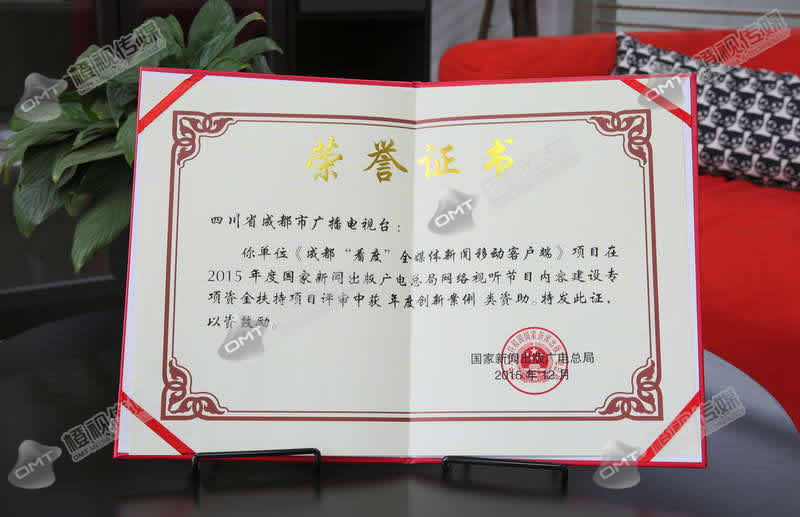 荣誉证书
四川省成都市广播电视台：
你单位《成都“看度”全媒体新闻移动客户端》项目在
2015年度国家新闻出版广电总局网络视听节目内容建设专
项资金扶持项目评审中获 年度创新案例 类资助。特发此证，
以资鼓励。
国家新闻出版广电总局
2015年12月
OMT 橙视传媒
OMT
OMT
OMT
OMT 橙视传媒
OMT 橙视传媒